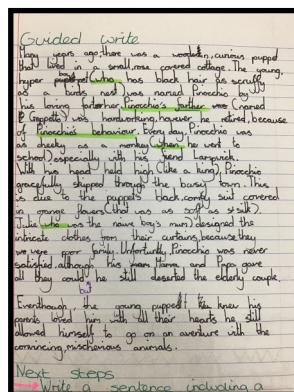 Guided write
Many years ago, there was a wooden, curious puppet
that lived in a small, rose covered cottage. The young,
hyper boy (who has black hair as scruffy
as a birds nest) was named Pinocchio by
his loving farther. Pinocchio's farther (named
Geppetto) was hardworking, however he retired, because
of Pinocchio's behaviour. Every day, Pinocchio was
as cheeky as a monkey (when he went to
school) especially with his friend Lampwick.
With his head held high (like a king), Pinocchio
gracefully skipped through the busy town. This
is due to the puppet's black, comfy suit covered
in orange flowers (that was as soft as silk).
Julie who was the naive boy's mum) designed the
intricate clothes from their curtains, because they
were poor family. Unfortunatly, Pinocchio was never
satisfied, although his Mama and Papa gave
all they could he still deserted the elderly couple.
But
Eventhough, the young puppet knew his
parents loved him with all their hearts he still
allowed himself to go on an aventure with the
convincing, mischevious animals.
Next steps
Write a sentence including a